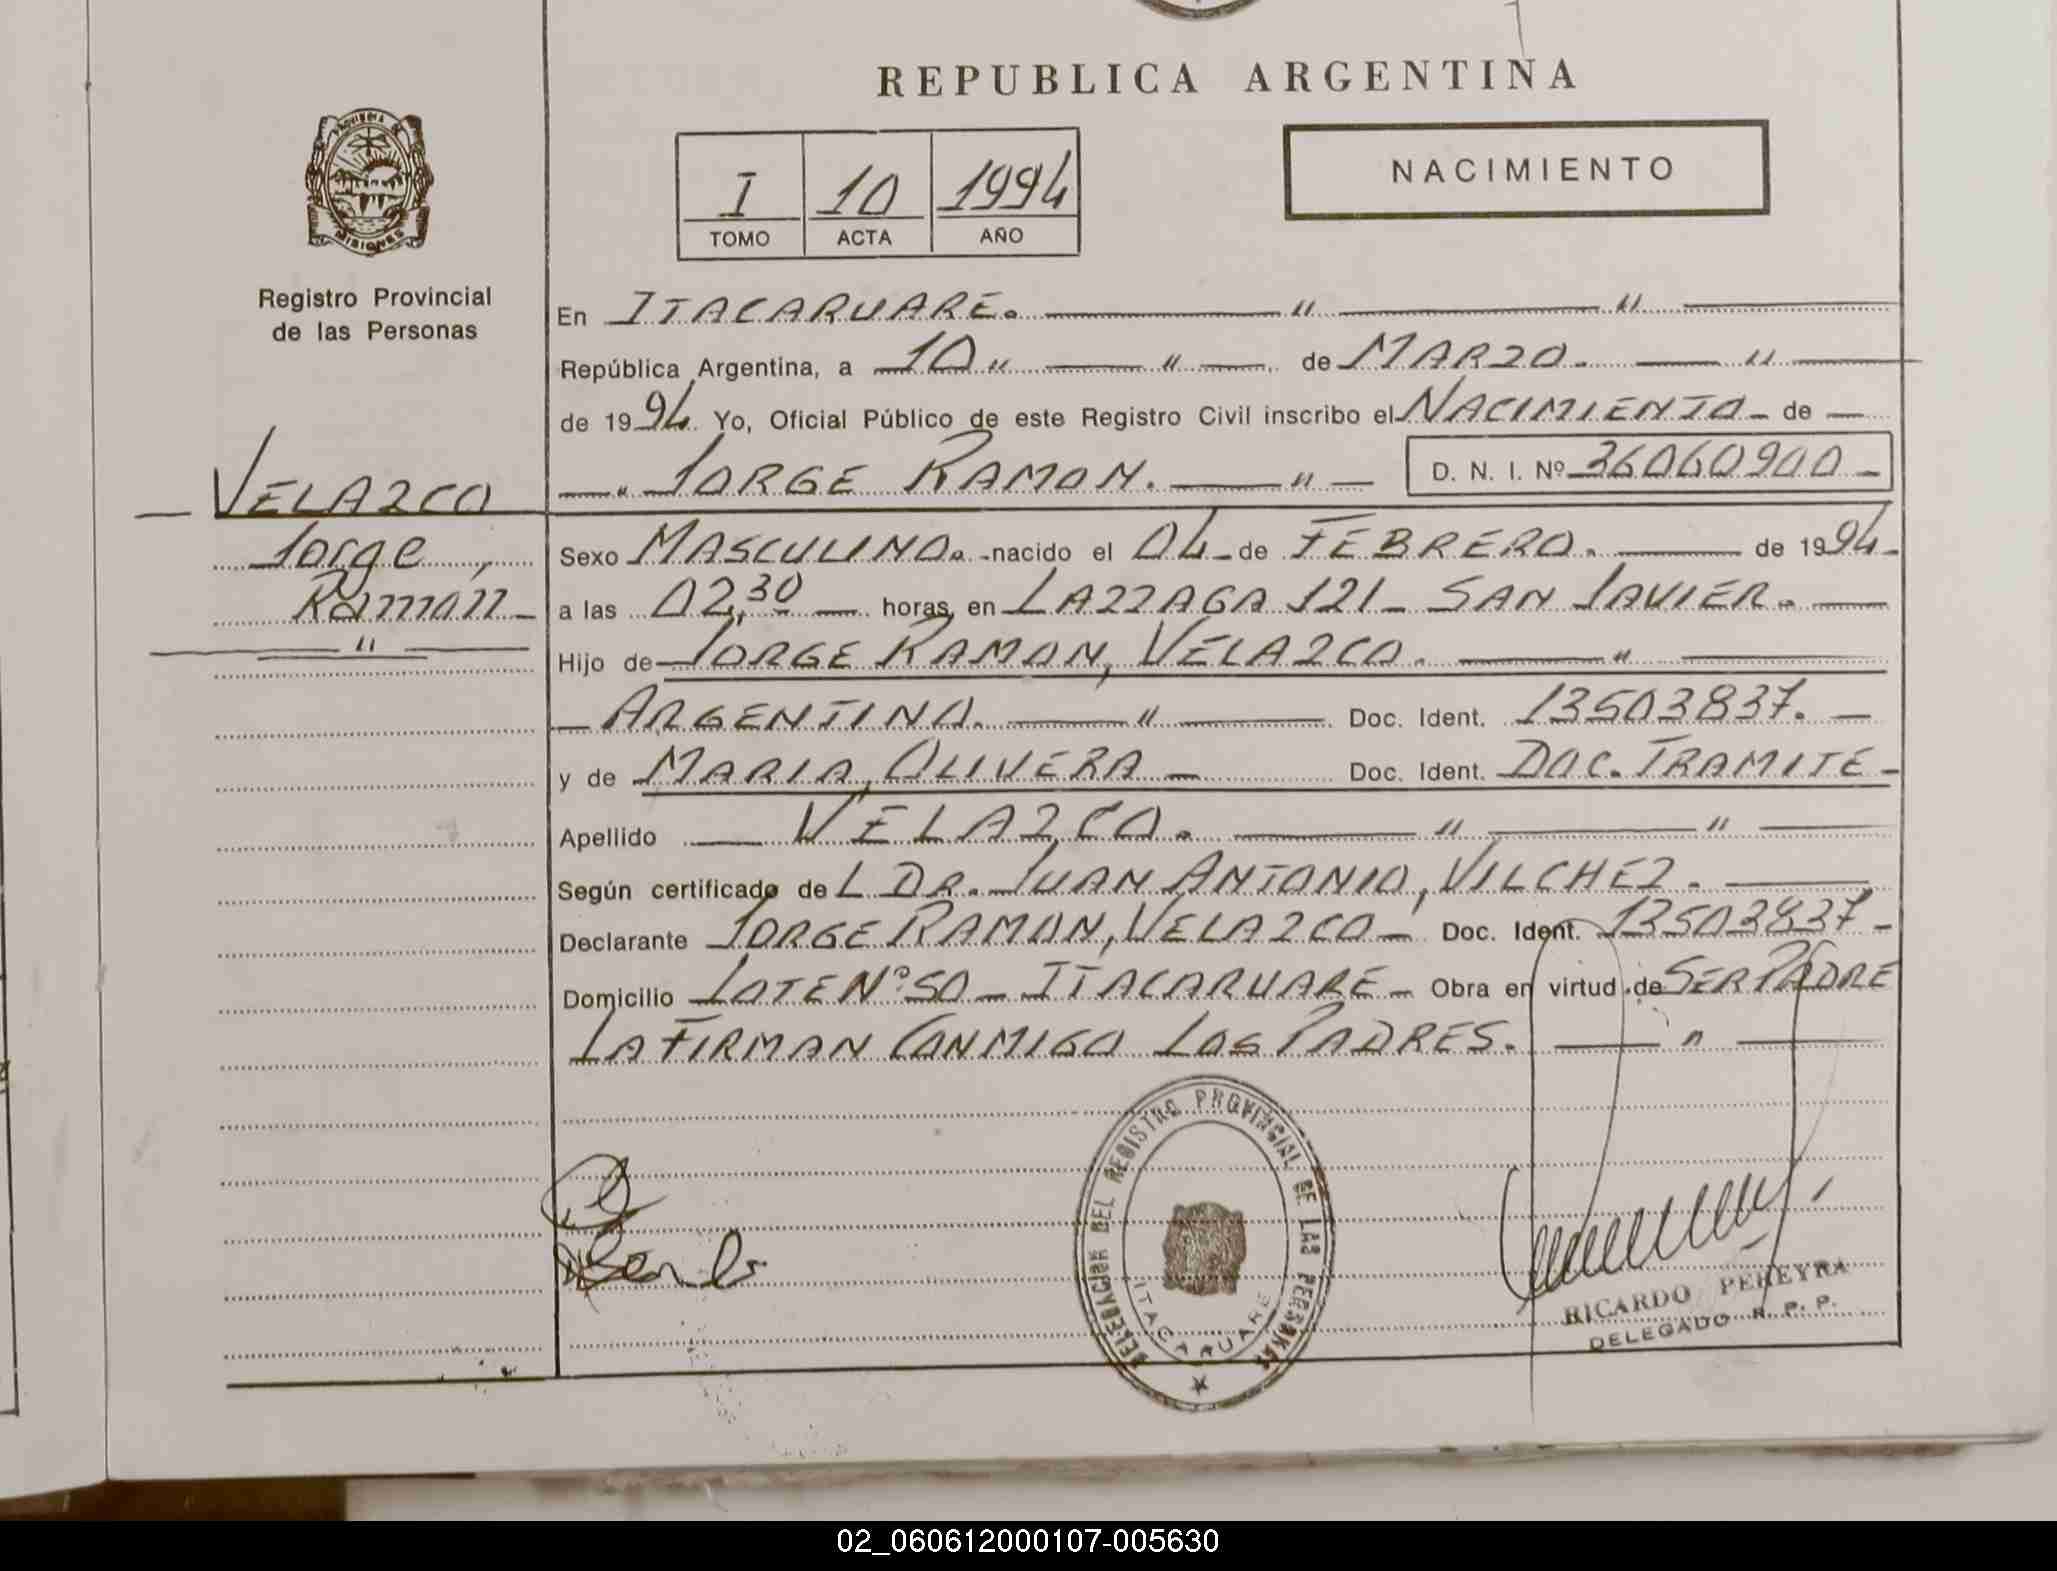 REPUBLICA ARGENTINA
PROVINCIA DE
MISIONES
Registro Provincial
de las Personas
I 10 1994
TOMO ACTA AÑO
NACIMIENTO
En ITACARUARE. " "
República Argentina, a 10 " " de MARZO. "
de 1994 Yo, Oficial Público de este Registro Civil inscribo el NACIMIENTO de
" JORGE RAMON. " D. N. I. Nº 36060900
VELAZCO
Jorge,
Ramón
"
Sexo MASCULINO. nacido el 04 de FEBRERO. de 1994
a las 02,30 horas, en LAZZAGA 121 SAN JAVIER.
Hijo de JORGE RAMON, VELAZCO. "
ARGENTINO. " Doc. Ident. 13503837.
y de MARIA, OLIVERA Doc. Ident. DOC. TRAMITE
Apellido VELAZCO. " "
Según certificado de L DR. JUAN ANTONIO, VILCHEZ.
Declarante JORGE RAMON, VELAZCO Doc. Ident. 13503837
Domicilio LOTE Nº 50 ITACARUARE Obra en virtud de SER PADRE
LA FIRMAN CONMIGO LOS PADRES. "
DELEGACION DEL REGISTRO PROVINCIAL DE LAS PERSONAS
ITACARUARE
RICARDO PEREYRA
DELEGADO R. P. P.
02_060612000107-005630